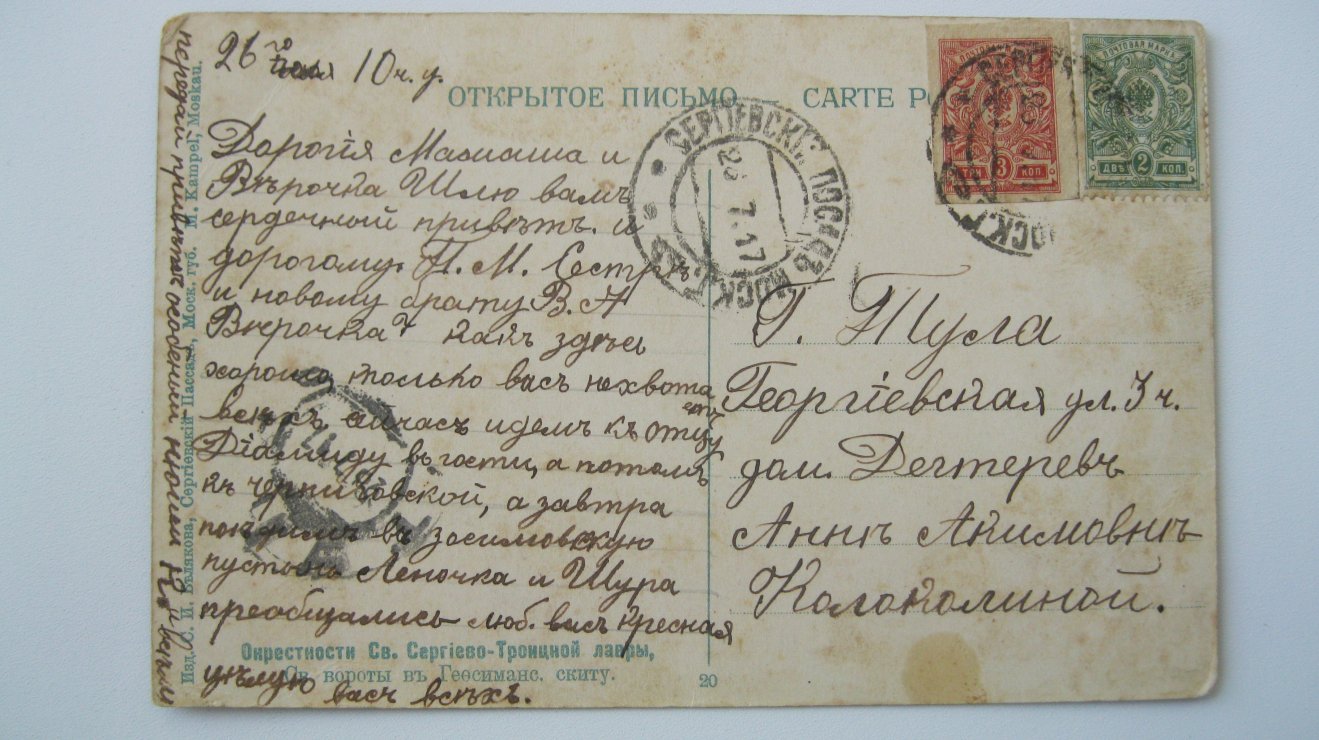 26го Iюля 10 ч. у.
ОТКРЫТОЕ ПИСЬМО
CARTE PO
Дорогiя Мамаша и
Вѣрочка Шлю вамъ
сердечной привѣтъ. и
дорогому. П. М. Сестрѣ
и новому брату В. А
Вѣрочка какъ здѣсь
харошо, только васъ нехвота
етъ
всѣхъ сичасъ идемъ къ отцу
Дiамиду въ гости, а потомъ
къ черниговской, а завтра
поѣдимъ въ зосимовскую
пустонь Леночка и Шура
преобщались люб. васъ Кресная
цѣлую васъ всѣхъ.
передай привѣтъ особенный
и всѣмъ
Изд. С. И. Бѣлякова, Сергiевскiй Пассадъ, Моск. губ. M. Kampel, Moskau.
Окрестности Св. Сергiево-Троицкой лавры,
Св. вороты въ Геѳсиманс. скиту.
20
СЕРГIЕВСКIЙ ПОСАДЪ МОСК. Г.
26.7.17
ПОЧТОВАЯ МАРКА
3
ТРИ КОП.
ПОЧТОВАЯ МАРКА
2
ДВѢ КОП.
Г. Тула
Георгiевская ул. 3 ч.
дом. Дегтеревъ
Аннѣ Акимовнѣ
Колоколиной.